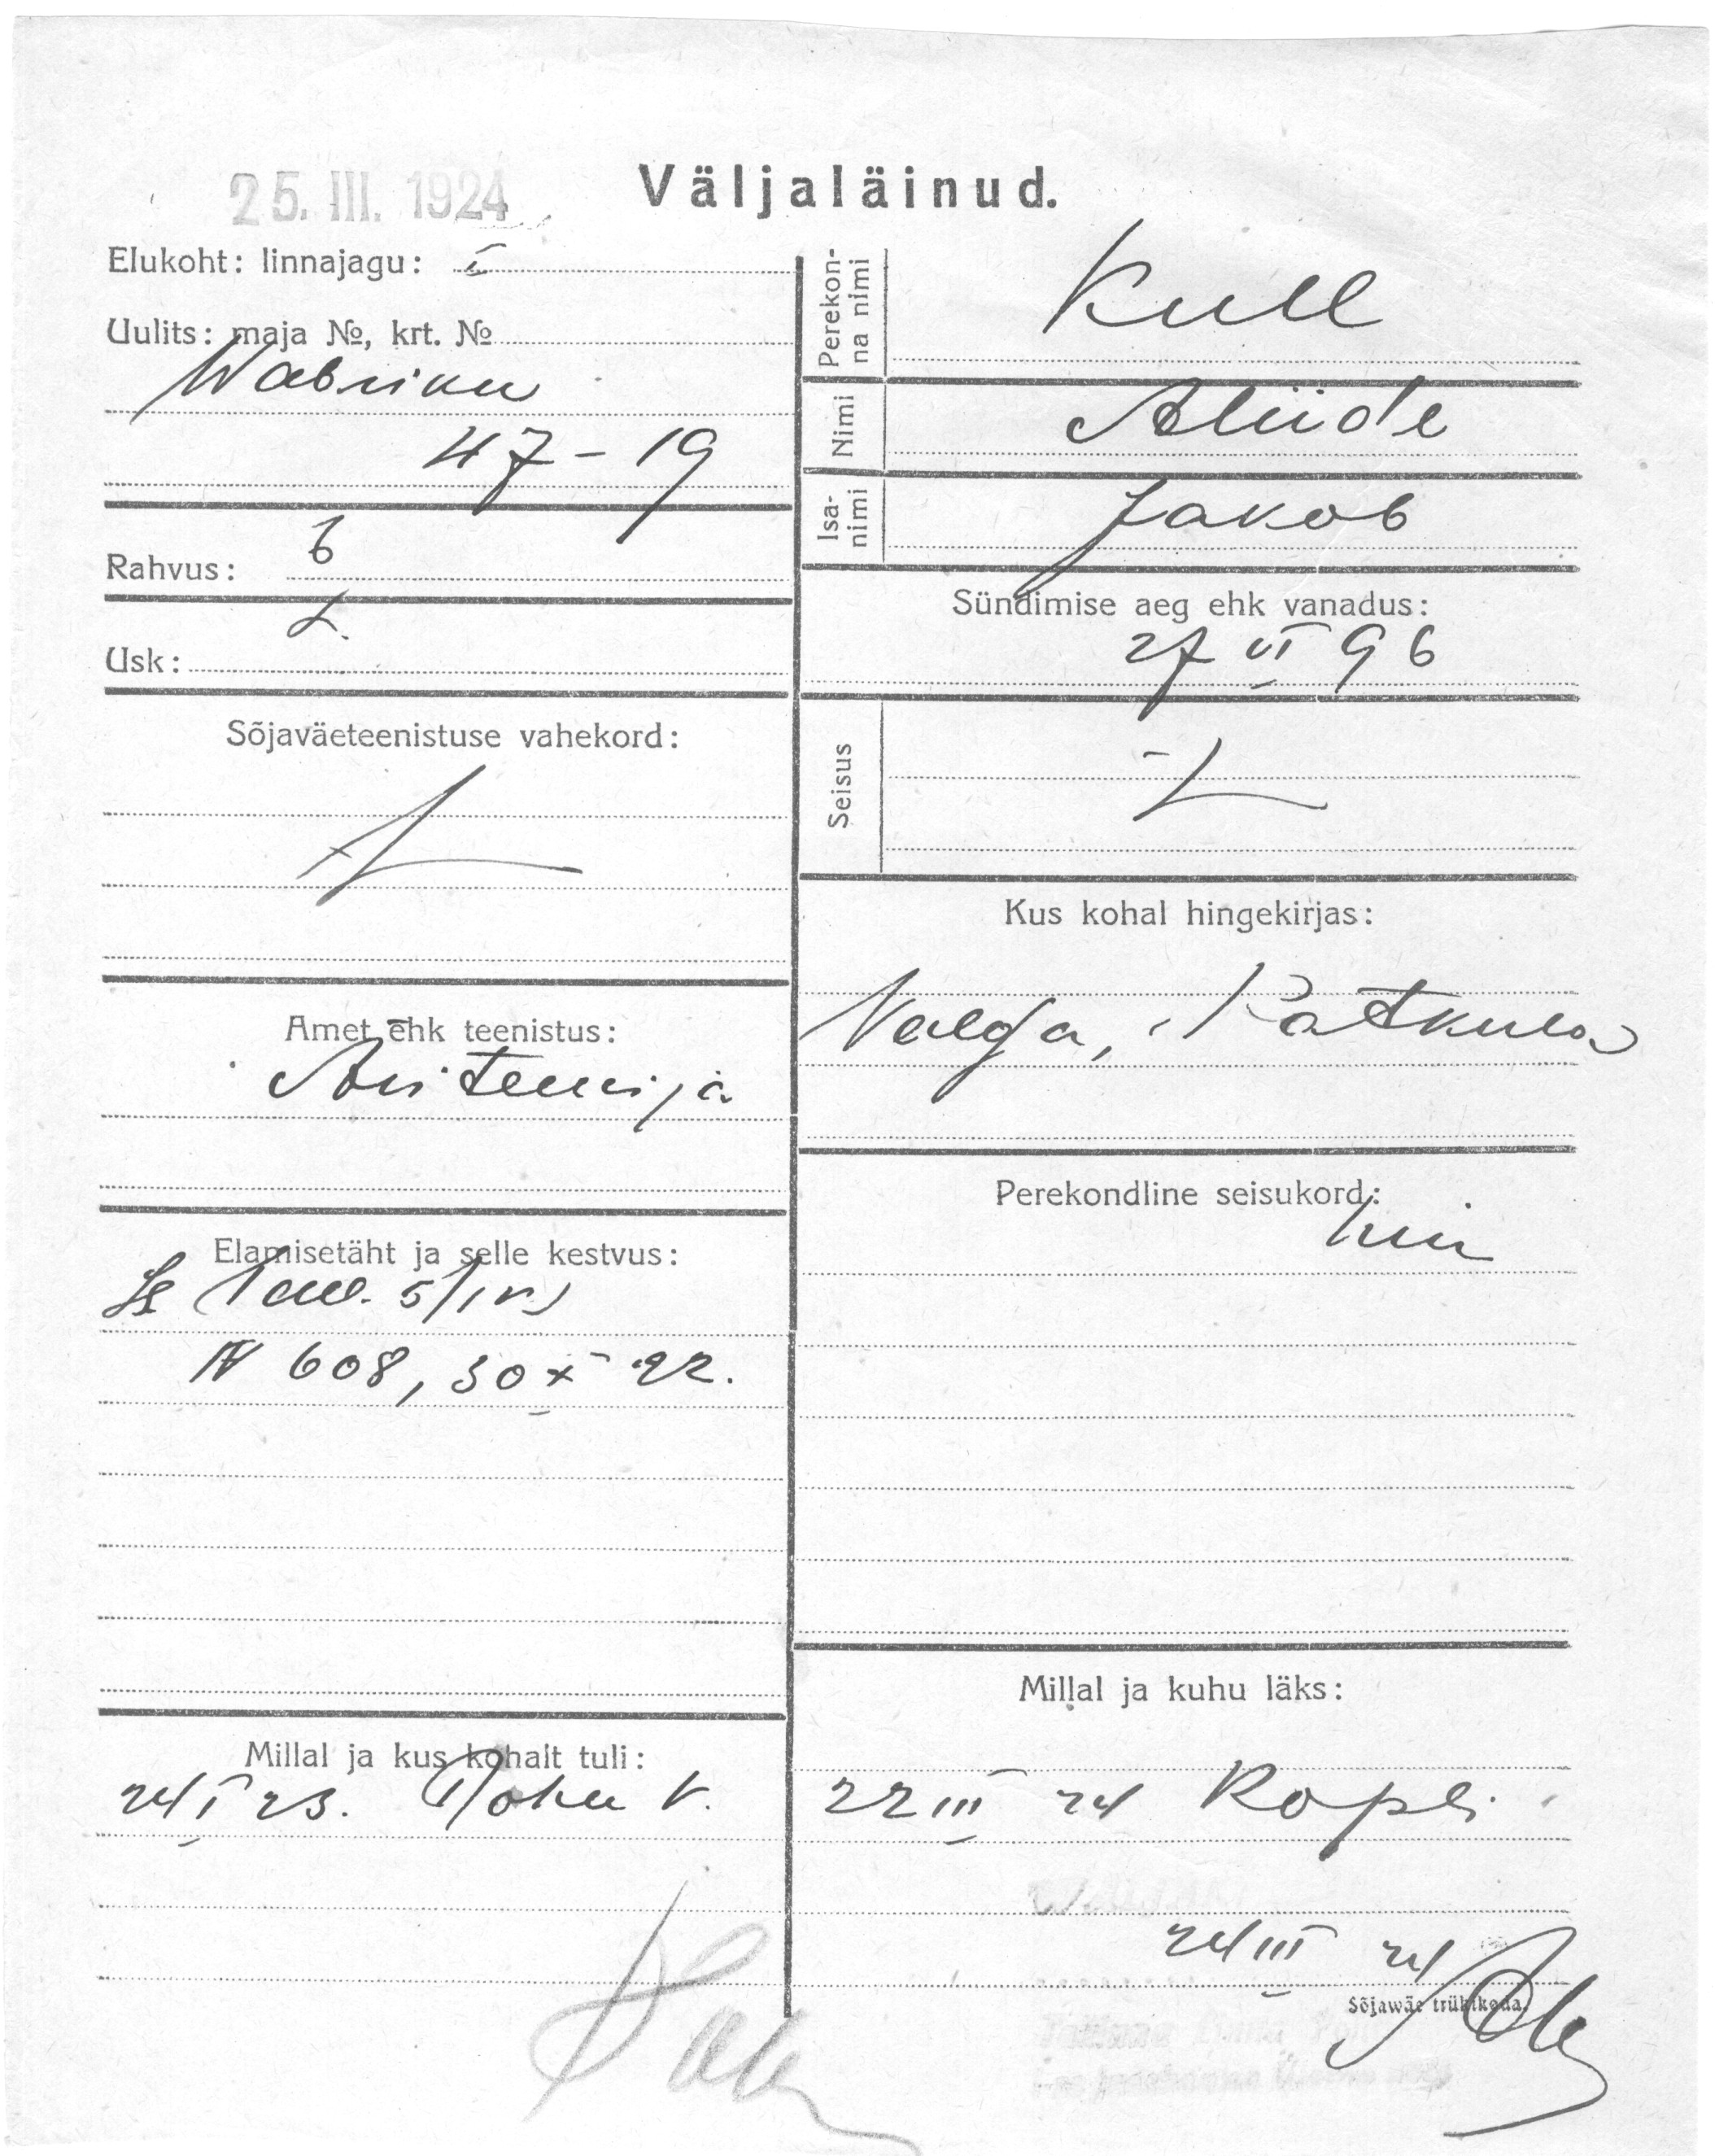 25. III. 1924
Väljaläinud.
Elukoht: linnajagu: I
Uulits: maja №, krt. №
Wabriku
47 - 19
Rahvus: E
Usk: L.
Sõjaväeteenistuse vahekord:
Amet ehk teenistus:
Äriteenija
Elamisetäht ja selle kestvus:
N 608, 30 X 22.
Millal ja kus kohalt tuli:
24 I 23. Rohu t.
Perekonna nimi
Kull
Nimi
Aliide
Isanimi
Jakob
Sündimise aeg ehk vanadus:
27 VI 96
Seisus
Kus kohal hingekirjas:
Valga, Patkula
Perekondline seisukord:
Millal ja kuhu läks:
22 III 24 Kopli
24 III 24
Sõjawäe trükikoda.